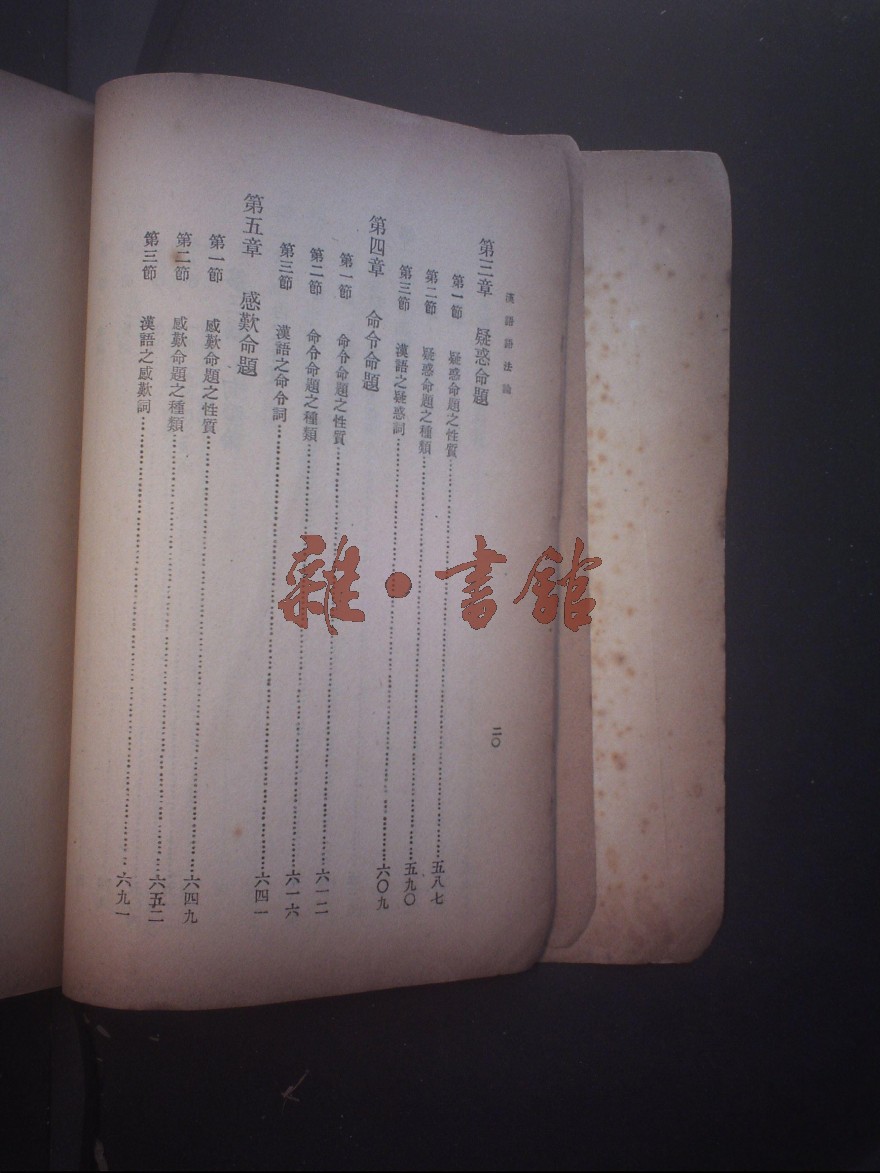 漢語語法論 二〇
第三章 疑惑命題
第一節 疑惑命題之性質……五八七
第二節 疑惑命題之種類……五九〇
第三節 漢語之疑惑詞……六〇九
第四章 命令命題
第一節 命令命題之性質……六一二
第二節 命令命題之種類……六一六
第三節 漢語之命令詞……六四一
第五章 感歎命題
第一節 感歎命題之性質……六四九
第二節 感歎命題之種類……六五二
第三節 漢語之感歎詞……六九一
雜·書館